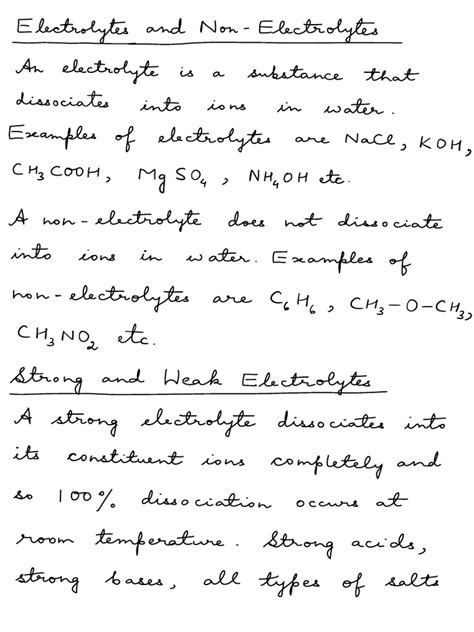 Electrolytes and Non-Electrolytes
An electrolyte is a substance that
dissociates into ions in water.
Examples of electrolytes are NaCl, KOH,
CH₃COOH, MgSO₄, NH₄OH etc.
A non-electrolyte does not dissociate
into ions in water. Examples of
non-electrolytes are C₆H₆, CH₃-O-CH₃,
CH₃NO₂ etc.
Strong and Weak Electrolytes
A strong electrolyte dissociates into
its constituent ions completely and
so 100% dissociation occurs at
room temperature. Strong acids,
strong bases, all types of salts